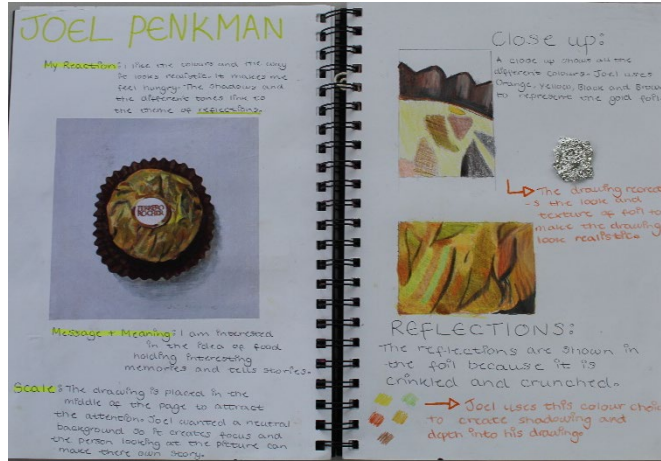 JOEL PENKMAN
My Reaction: I like the colours and the way
it looks realistic. It makes me
feel hungry. The shadows and
the different tones link to
the theme of reflections.
FERRERO
ROCHER
Message + Meaning: I am interested
in the idea of food
holding interesting
memories and tells stories.
Scale: The drawing is placed in the
middle of the page to attract
the attention. Joel wanted a neutral
background so it creates focus and
the person looking at the picture can
make there own story.
Close up:
A close up about all the
different colours. Joel uses
Orange, Yellow, Black and Brown
to represent the gold foil
The drawing
s the look and
texture of foil to
make the drawing
look realistic.
REFLECTIONS:
The reflections are shown in
the foil because it is
crinkled and crunched.
Joel uses this colour
to create shadowing and
depth into his drawing.